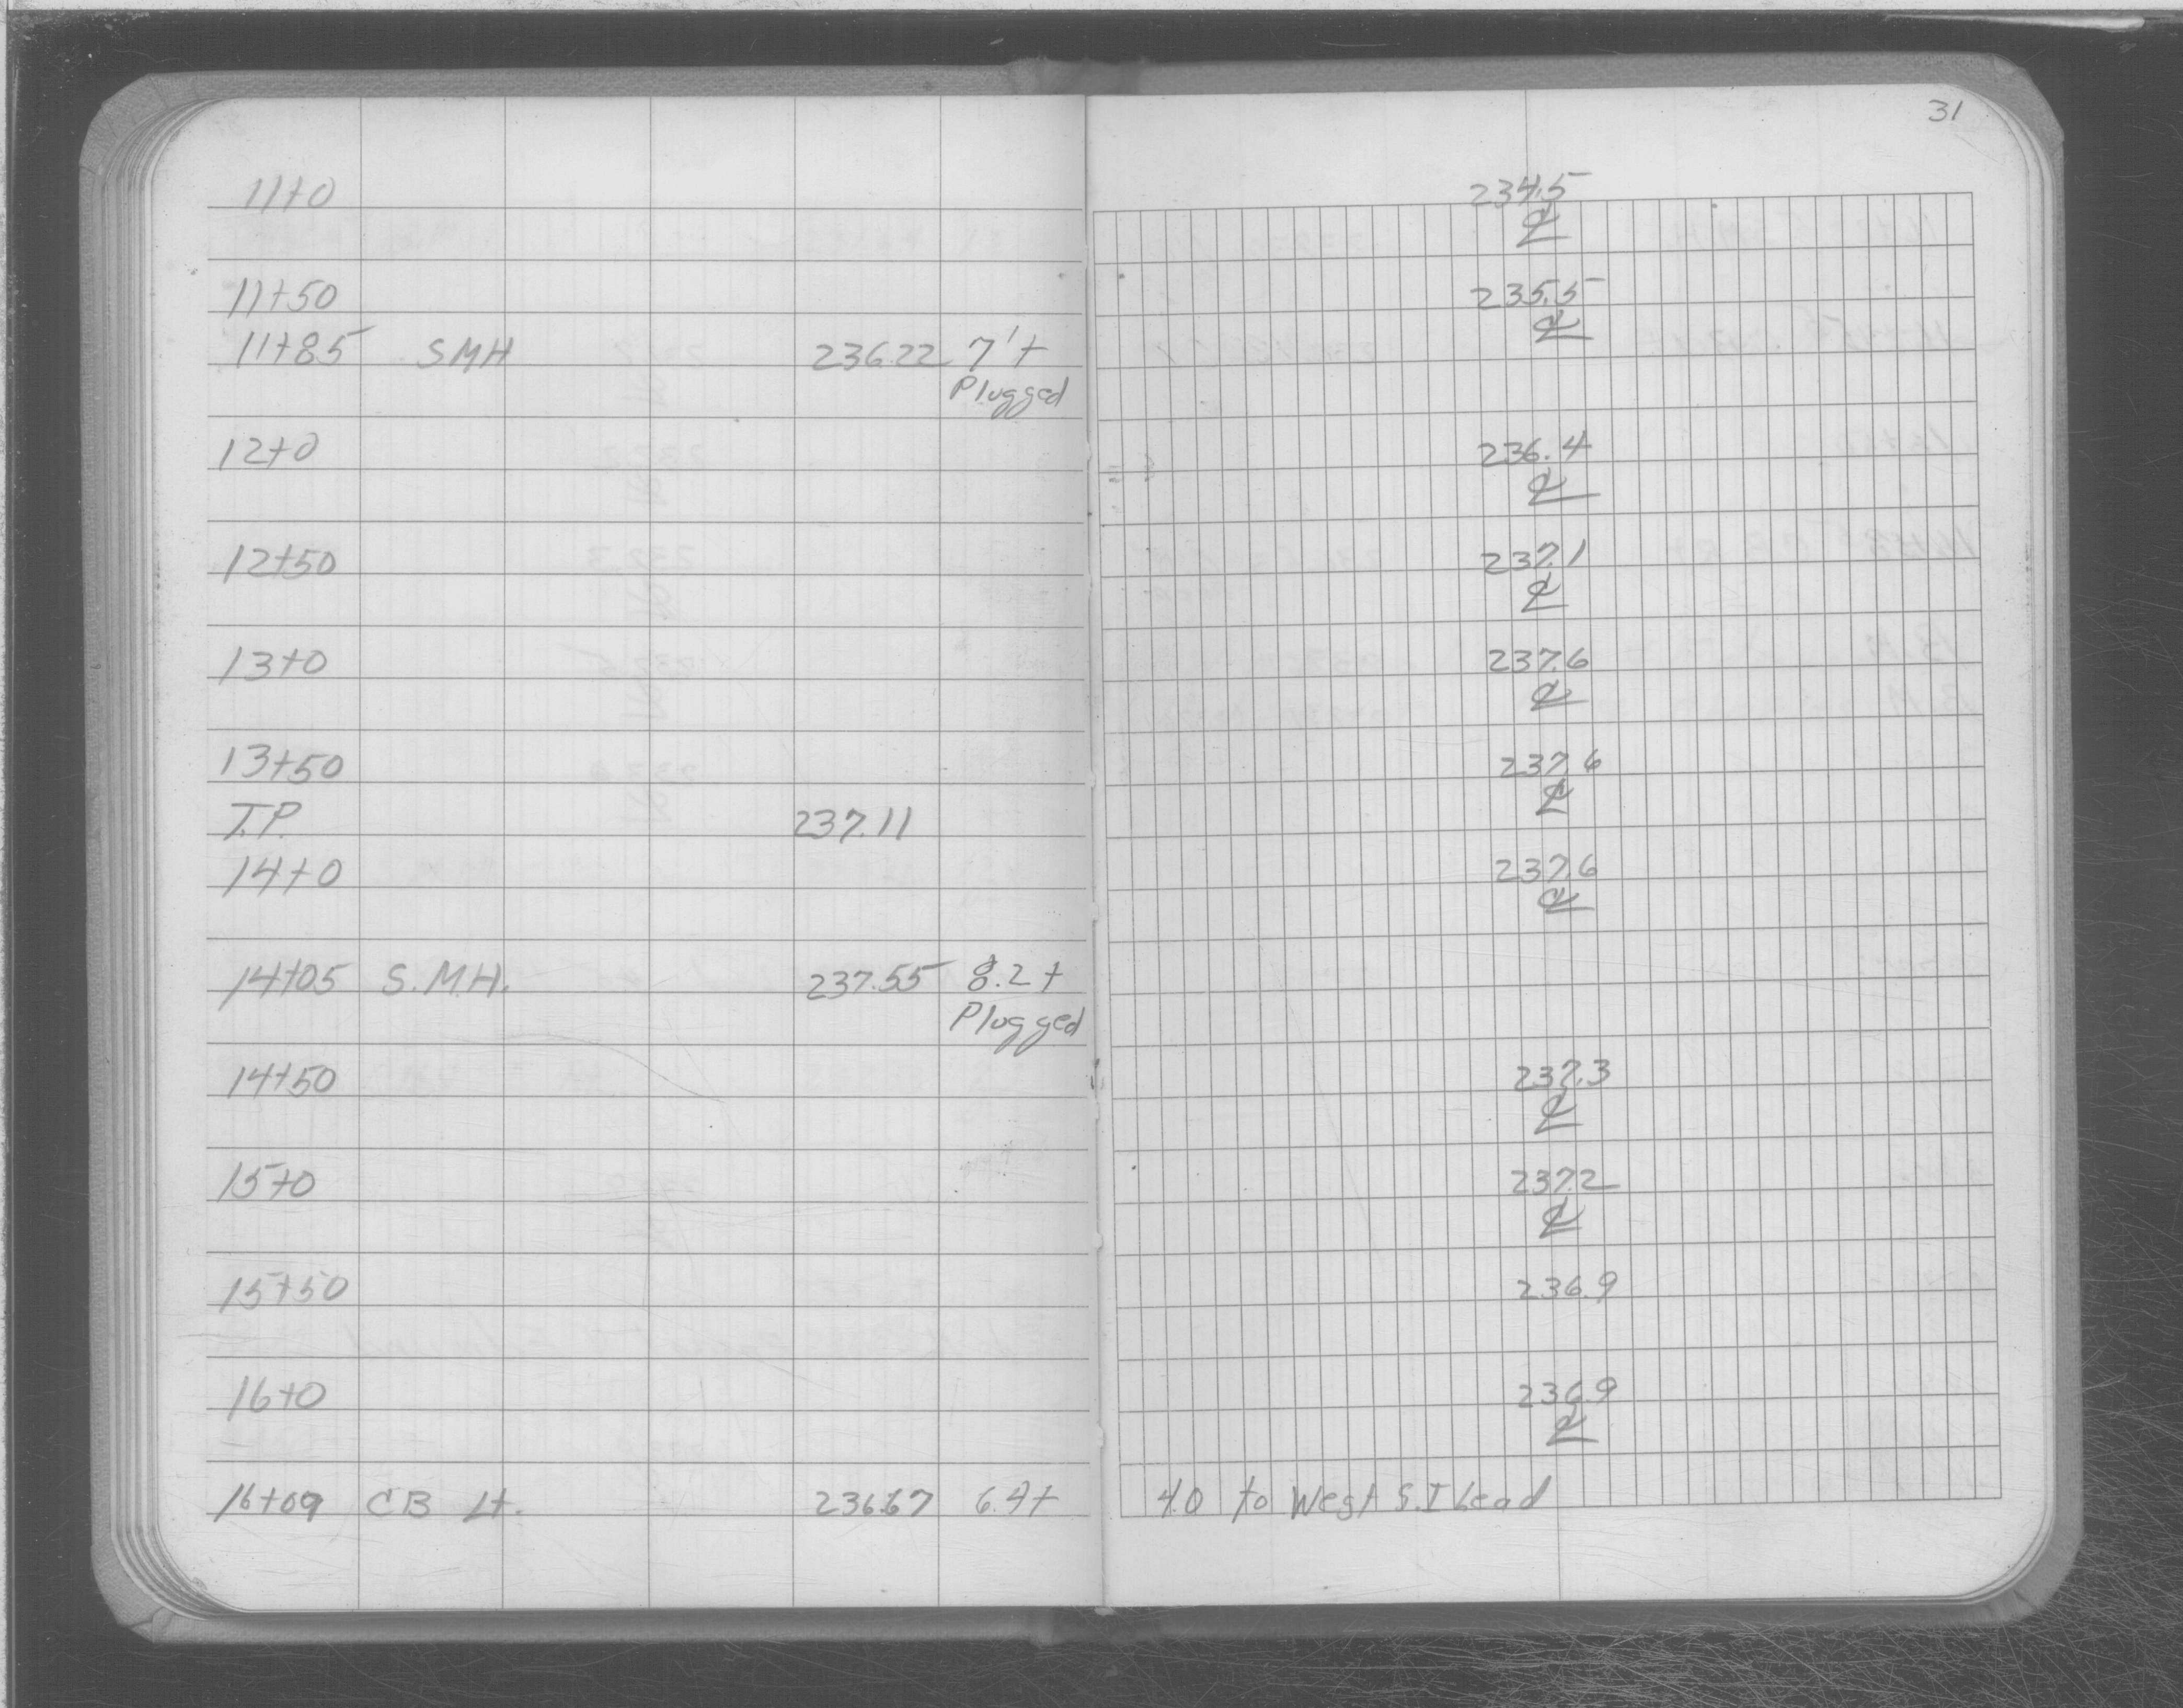 31
11+0 234.5
℄
11+50 235.5
℄
11+85 SMH 236.22 7'+
Plugged
12+0 236.4
℄
12+50 237.1
℄
13+0 237.6
℄
13+50 237.6
℄
T.P. 237.11
14+0 237.6
℄
14+05 S.M.H. 237.55 8.2+
Plugged
14+50 237.3
℄
15+0 237.2
℄
15+50 236.9
16+0 236.9
℄
16+09 CB Lt. 236.67 6.4+ 4.0 to West S.I Lead